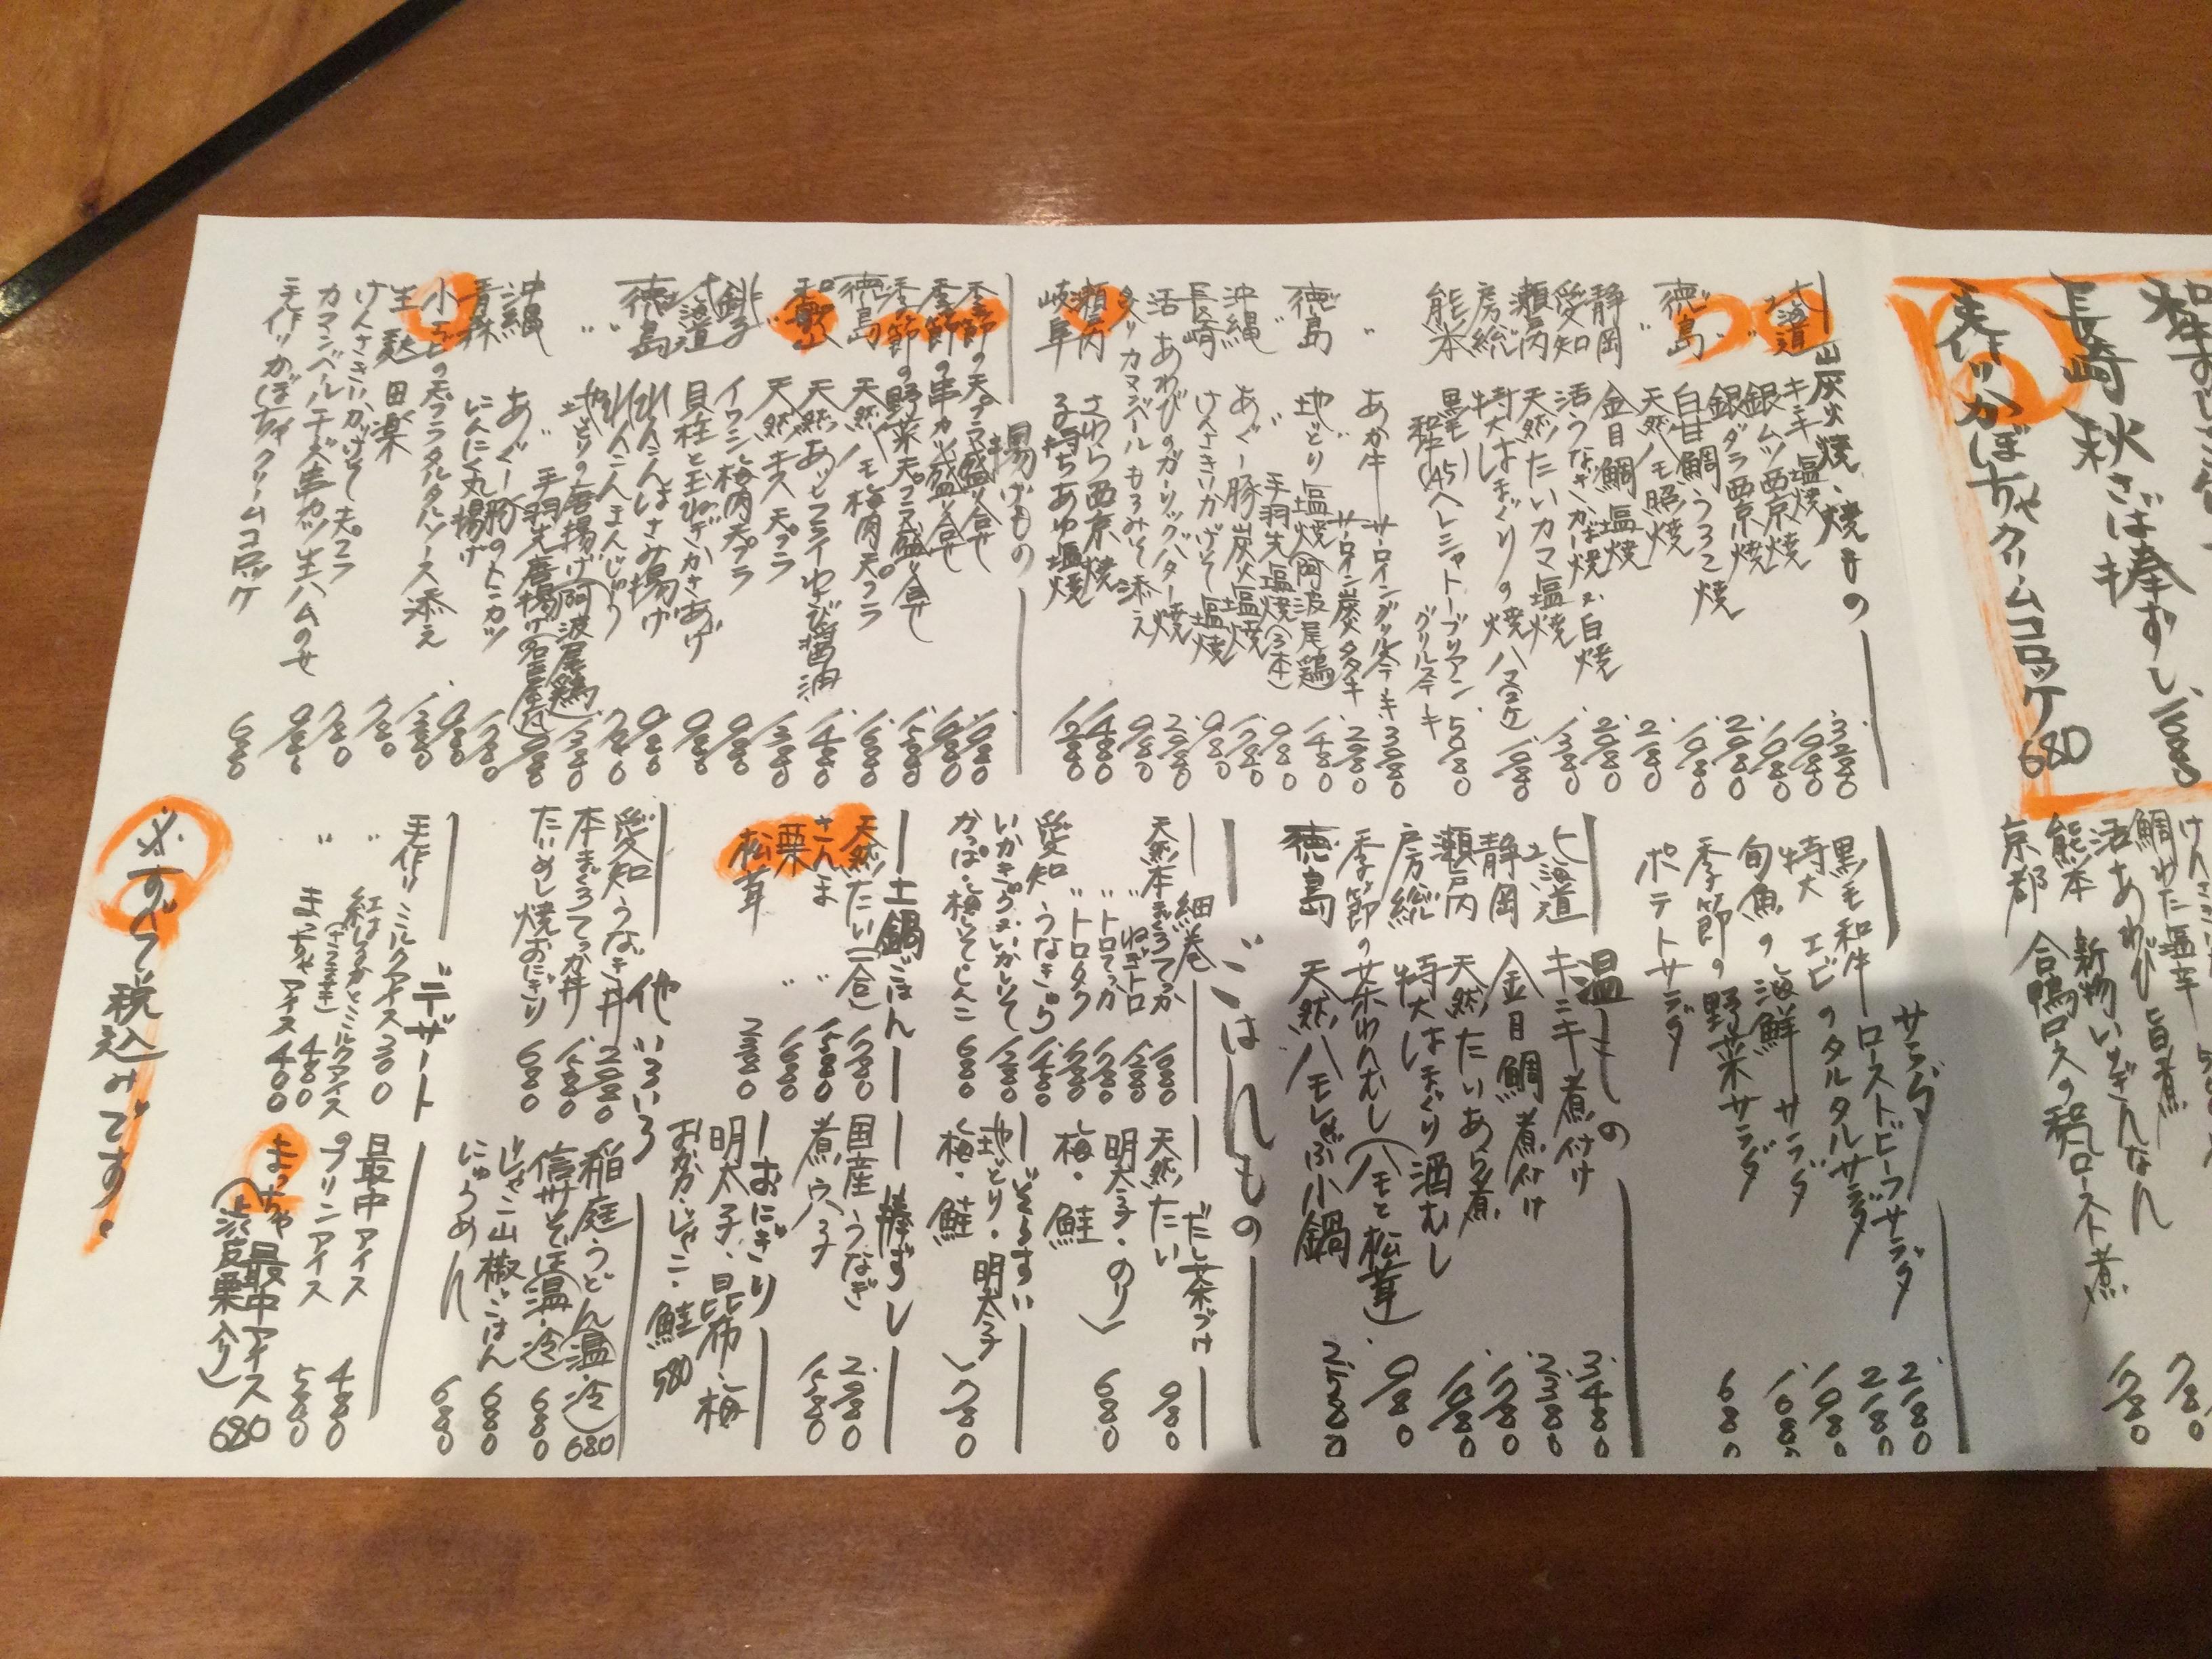 長崎 秋さば棒ずし 1680
手作りかぼちゃクリームコロッケ 680
炭火焼・焼きもの
北海道 キンキ塩焼 3280
〃 銀ムツ西京焼 1980
銀ダラ西京焼 1980
徳島 白甘鯛うろこ焼 2980
〃 天然ハモ照焼 1980
静岡 金目鯛塩焼 2180
愛知 活うなぎかば焼 又 白焼 2980
瀬戸内 天然たいカマ塩焼 1380
房総 特大はまぐりの焼ハマ(2ケ) 1080
熊本 黒毛和牛(A5)ヘレシャトーブリアン グリルステーキ 5080
〃 あか牛 サーロイングリルステーキ 3080
〃 サーロイン炭タタキ 2080
徳島 地どり塩焼(阿波尾鶏) 1480
〃 手羽先塩焼(3本) 980
沖縄 あぐー豚炭火塩焼 1780
長崎 けんさきいかげそ塩焼 980
活あわびのガーリックバター焼 2780
炙りカマンベール もろみそ添え 980
瀬戸内 さわら西京焼 1480
岐阜 子持ちあゆ塩焼 1280
揚げもの
季節の天プラ盛り合せ 1980
季節の串カツ盛り合せ 1980
季節の野菜天プラ盛り合せ 1580
徳島 天然ハモ梅肉天プラ 1680
天然あじフライわさび醤油 1480
天然キス天プラ 1380
銚子 イワシ梅肉天プラ 980
北海道 貝柱と玉ねぎかきあげ 980
徳島 れんこんはさみ揚げ 980
れんこんまんじゅう 780
〃 地どりの唐揚げ(阿波尾鶏) 1380
〃 手羽先唐揚げ(名古屋風) 980
沖縄 あぐー豚のトンカツ 1780
青森 にんにく丸揚げ 980
小エビの天プラタルタルソース添え 1380
生麩田楽 780
けんさきいかげそ天プラ 780
カマンベールチーズ串カツ生ハムのせ 980
手作りかぼちゃクリームコロッケ 680
鯛わた塩辛
活あわび旨煮
熊本 新物いちぎんなん 780
京都 合鴨ロースの和風ロースト煮 1780
サラダ
黒毛和牛 ローストビーフサラダ 2180
特大エビのタルタルサラダ 2180
旬魚の海鮮サラダ 1980
季節の野菜サラダ 1080
ポテトサラダ 680
温もの
北海道 キンキ煮付け 3480
静岡 金目鯛煮付け 2380
瀬戸内 天然たいあら煮 1780
房総 特大はまぐり酒むし 1380
季節の茶わんむし(ハモと松茸) 980
徳島 天然ハモしゃぶ小鍋 2580
ごはんもの
細巻
天然本まぐろてっか 1680
〃 ねぎトロ 1380
〃 トロてっか 1780
〃 トロタク 1780
愛知 うなきゅう 1480
いかきゅう又いかしそ 1280
かっぱ・梅しそしんこ 680
だし茶づけ
天然たい 980
明太子・のり
梅・鮭 680
ぞうすい
地どり・明太子
梅・鮭 780
土鍋ごはん
天然たい(一合) 1780
さんま 〃 1580
栗 〃 1680
松茸 2980
棒ずし
国産うなぎ 2980
煮穴子 1580
おにぎり
明太子・昆布・梅
おかか・じゃこ・鮭 580
他いろいろ
愛知うなぎ丼 2980
本まぐろてっか丼 1580
たいめし焼おにぎり 680
稲庭うどん(温・冷) 680
信州そば(温・冷) 680
じゃこ山椒ごはん 680
にゅうめん 680
デザート
手作りミルクアイス 300
〃 紅はるかとミルクアイス 480
〃 まっちゃアイス 400
最中アイス 480
プリンアイス 580
まっちゃ最中アイス(渋皮栗入り) 680
※すべて税込みです。